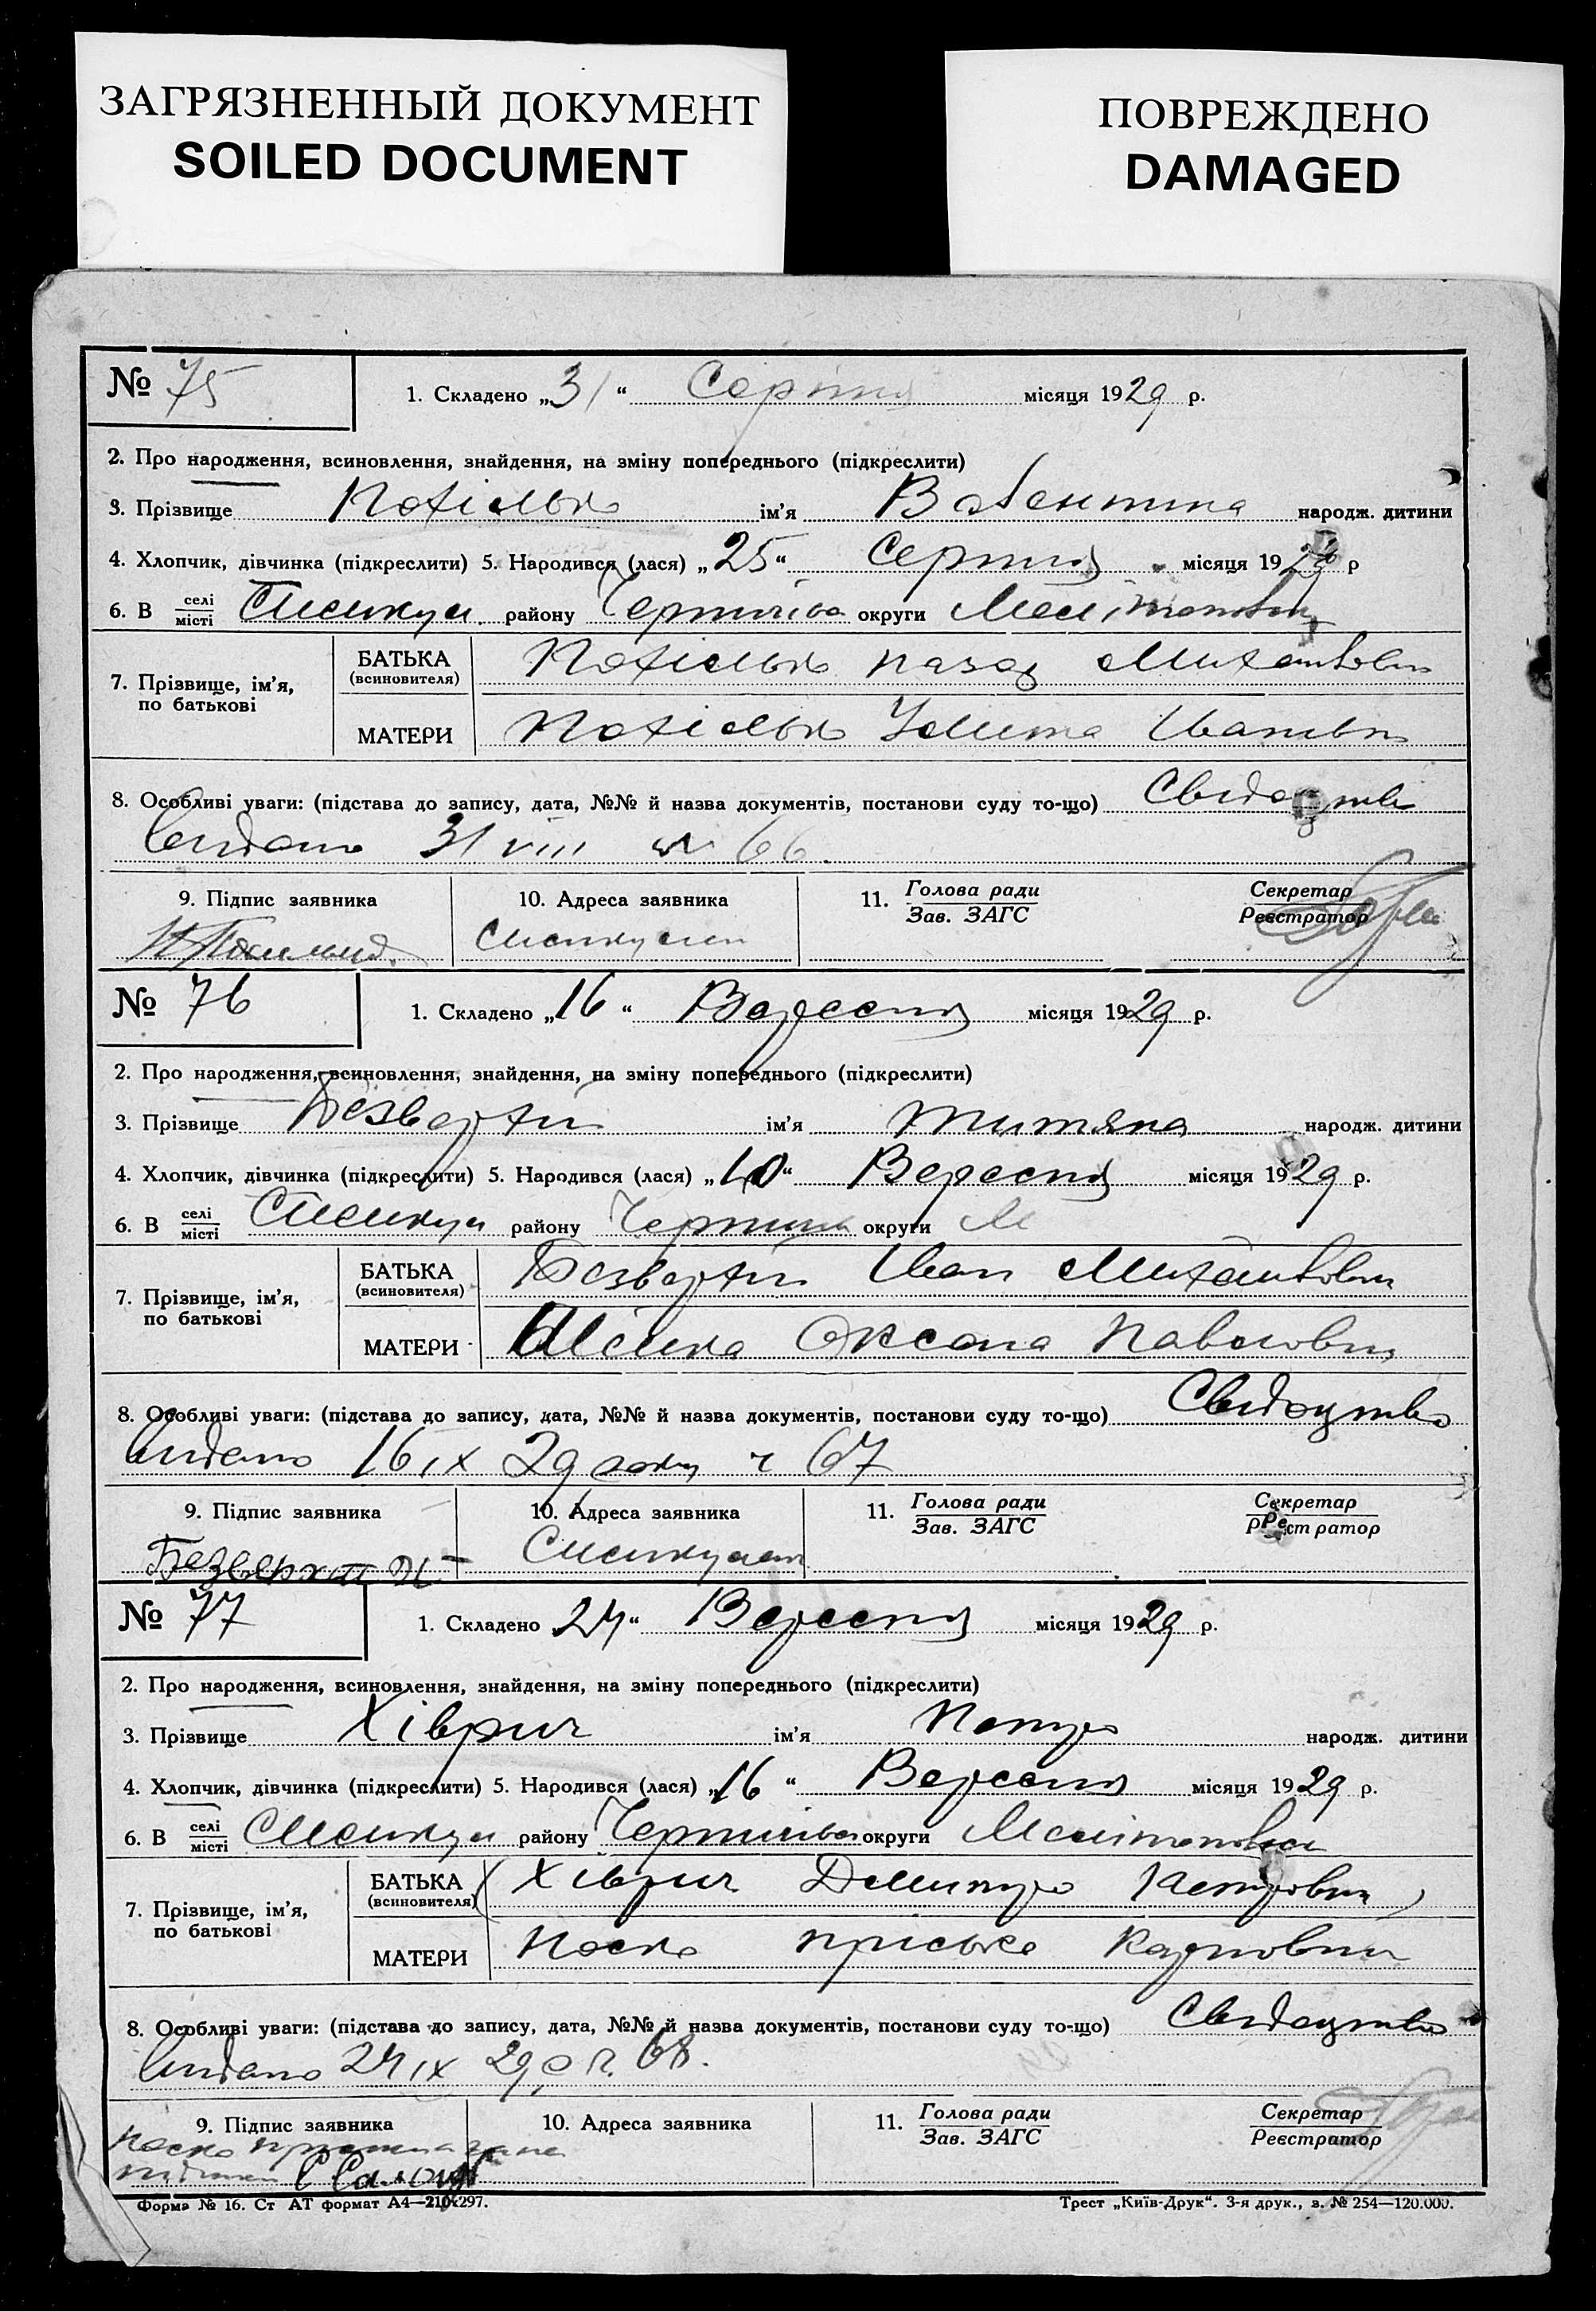 ЗАГРЯЗНЕННЫЙ ДОКУМЕНТ
SOILED DOCUMENT
ПОВРЕЖДЕНО
DAMAGED
№ 75
1. Складено „31“ Серпня місяця 1929 р.
2. Про народження, всиновлення, знайдення, на зміну попереднього (підкреслити)
3. Прізвище ім'я Валентина народж. дитини
4. Хлопчик, дівчинка (підкреслити) 5. Народився (лася) „25“ Серпня місяця 1929 р
6. В селі/місті району округи
7. Прізвище, ім'я, по батькові
БАТЬКА (всиновителя) Михайлович
МАТЕРИ Уліта Іванівна
8. Особливі уваги: (підстава до запису, дата, №№ й назва документів, постанови суду то-що) Свидоцтво
видано 31 VIII № 66.
9. Підпис заявника
10. Адреса заявника
11. Голова ради/Зав. ЗАГС
Секретар/Реєстратор
№ 76
1. Складено „16“ Вересня місяця 1929 р.
2. Про народження, всиновлення, знайдення, на зміну попереднього (підкреслити)
3. Прізвище Безверхий ім'я Титяна народж. дитини
4. Хлопчик, дівчинка (підкреслити) 5. Народився (лася) „10“ Вересня місяця 1929 р.
6. В селі/місті району округи М
7. Прізвище, ім'я, по батькові
БАТЬКА (всиновителя) Безверхий Иван Михайлович
МАТЕРИ Оксана Павловна
8. Особливі уваги: (підстава до запису, дата, №№ й назва документів, постанови суду то-що) Свидоцтво
видано 16 IX 29 року ч 67
9. Підпис заявника
Безверхий И.
10. Адреса заявника
11. Голова ради/Зав. ЗАГС
Секретар/Реєстратор
№ 77
1. Складено „24“ Вересня місяця 1929 р.
2. Про народження, всиновлення, знайдення, на зміну попереднього (підкреслити)
3. Прізвище Хіврич ім'я Петро народж. дитини
4. Хлопчик, дівчинка (підкреслити) 5. Народився (лася) „16“ Вересня місяця 1929 р.
6. В селі/місті району округи
7. Прізвище, ім'я, по батькові
БАТЬКА (всиновителя) (Хіврич Дмитро Петрович)
МАТЕРИ Носко Пріська Карповна
8. Особливі уваги: (підстава до запису, дата, №№ й назва документів, постанови суду то-що) Свидоцтво
видано 24 IX 29 р. 68.
9. Підпис заявника
10. Адреса заявника
11. Голова ради/Зав. ЗАГС
Секретар/Реєстратор
Форма № 16. Ст АТ формат А4—210х297.
Трест „Київ-Друк“. 3-я друк., з. № 254—120.000.